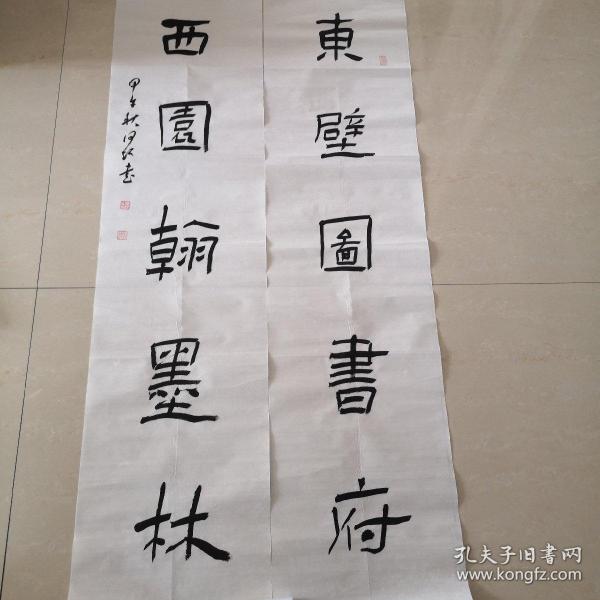 東壁圖書府
西園翰墨林
甲午秋日
書
孔夫子旧书网
www.kongfz.com